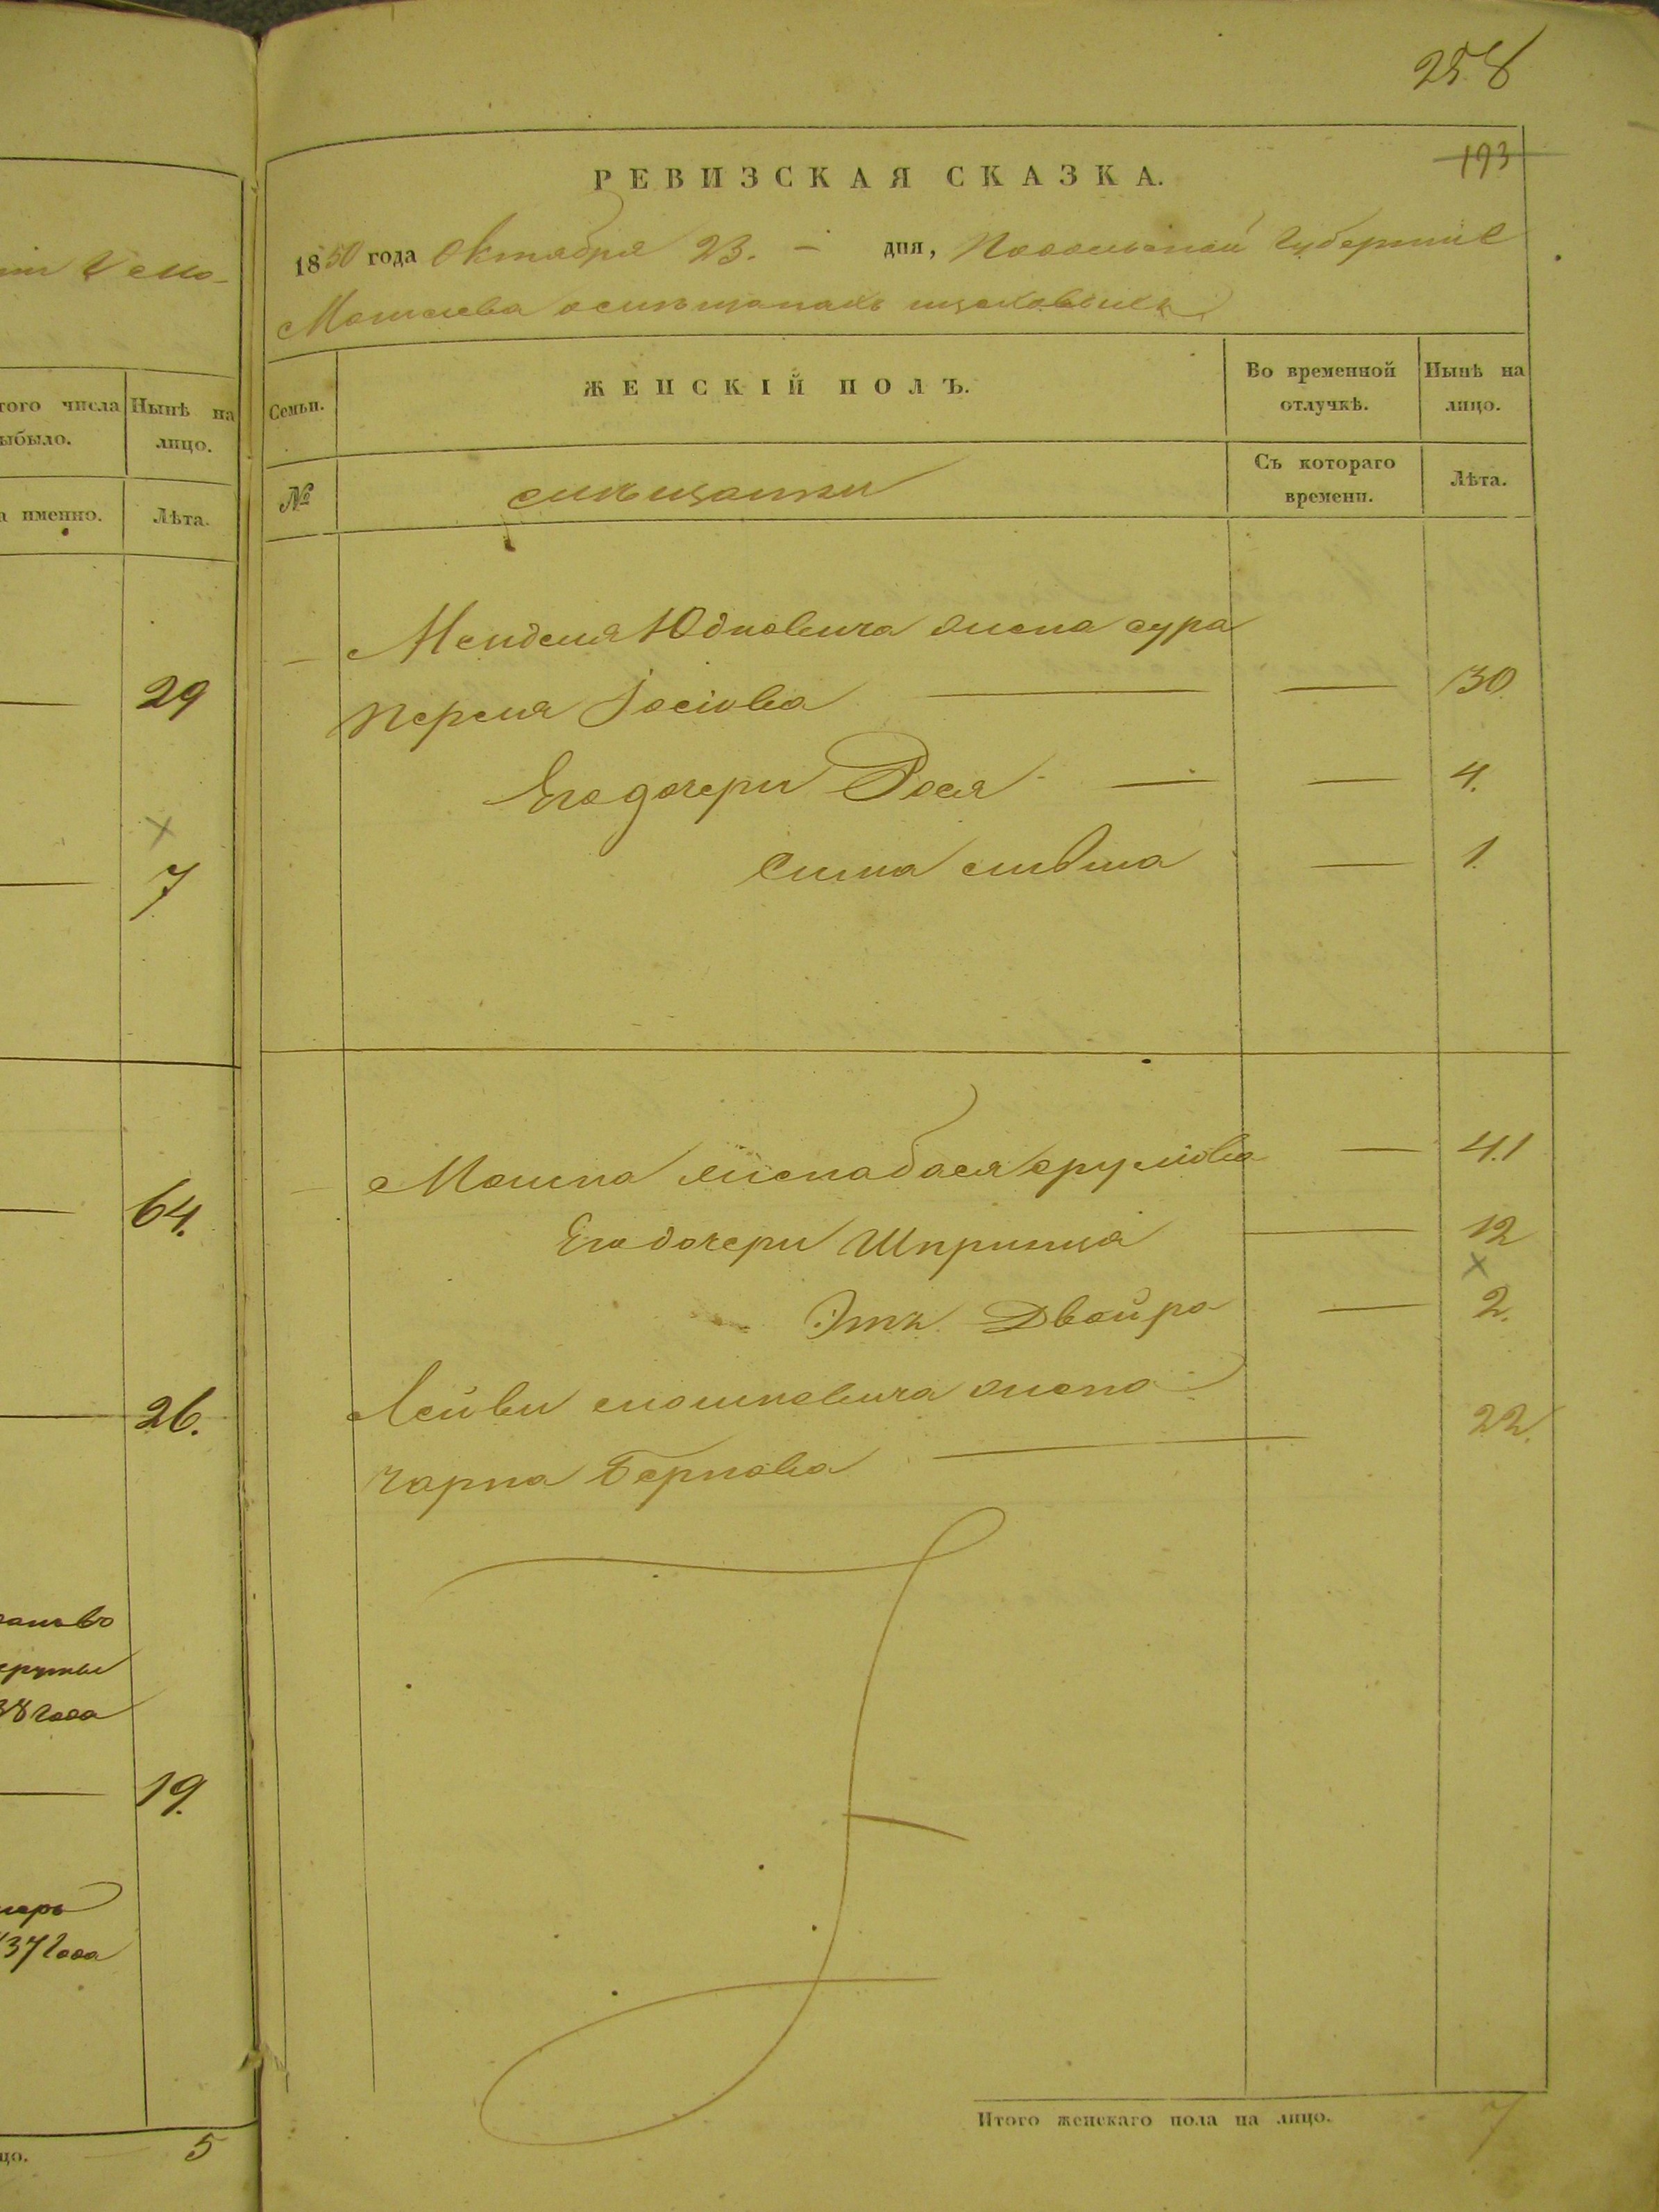 258
193
РЕВИЗСКАЯ СКАЗКА.
1850 года Октября 23. — дня, Подольской Губерніи
Могилева о мѣщанахъ
того числа
выбыло.
Нынѣ на
лицо.
Семьи.
ЖЕНСКІЙ ПОЛЪ.
Во временной
отлучкѣ.
Нынѣ на
лицо.
а именно.
Лѣта.
№
мѣщанки
Съ котораго
времени.
Лѣта.
Менделя Юдковича жена Сура
Переля Іосіова — — 30.
Его дочери Рося — — 4.
Сима — 1.
29
7
Мошка жена Бася Срулiова — 41
Его дочери Шпринца — 12
Этя Двойра — 2.
Лейби Мошковича жена
Чарна Беркова — 22.
64.
26.
38 года
19.
37 года
цо. 5
Итого женскаго пола на лицо. 7